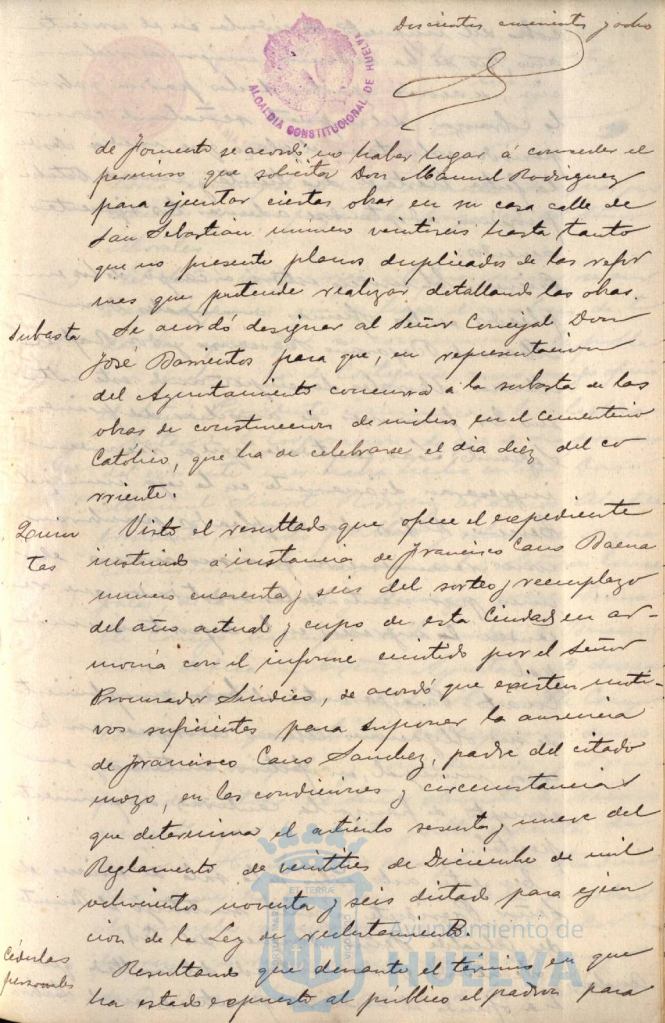 Doscientos cuarenta y ocho
ALCALDIA CONSTITUCIONAL DE HUELVA
de Fomento se acordó no haber lugar á conceder el
permiso que solicita Don Manuel Rodriguez
para ejecutar ciertas obras en su casa calle de
San Sebastian numero veintiseis hasta tanto
que no presente planos duplicados de las refor
mas que pretende realizar detallando las obras.
Subasta
Se acordó designar al Señor Concejal Don
José Barrientos para que, en representacion
del Ayuntamiento concurra á la subasta de las
obras de construccion de nichos en el Cementerio
Católico, que ha de celebrarse el dia diez del co
rriente.
Quin
tas
Visto el resultado que ofrece el expediente
instruido a instancia de Francisco Cano Baena
número cuarenta y seis del sorteo y reemplazo
del año actual y cupo de esta Ciudad en ar-
monia con el informe emitido por el Señor
Procurador Sindico, se acordó que existen moti-
vos suficientes para suponer la ausencia
de Francisco Cano Sanchez, padre del citado
mozo, en las condiciones y circunstancias
que determina el artículo sesenta y nueve del
Reglamento de veintitres de Diciembre de mil
ochocientos noventa y seis dictado para ejecu
cion de la Ley de reclutamiento.
Cédulas
personales
Resultando que durante el termino en que
ha estado expuesto al público el padron para
Ayuntamiento de
HUELVA